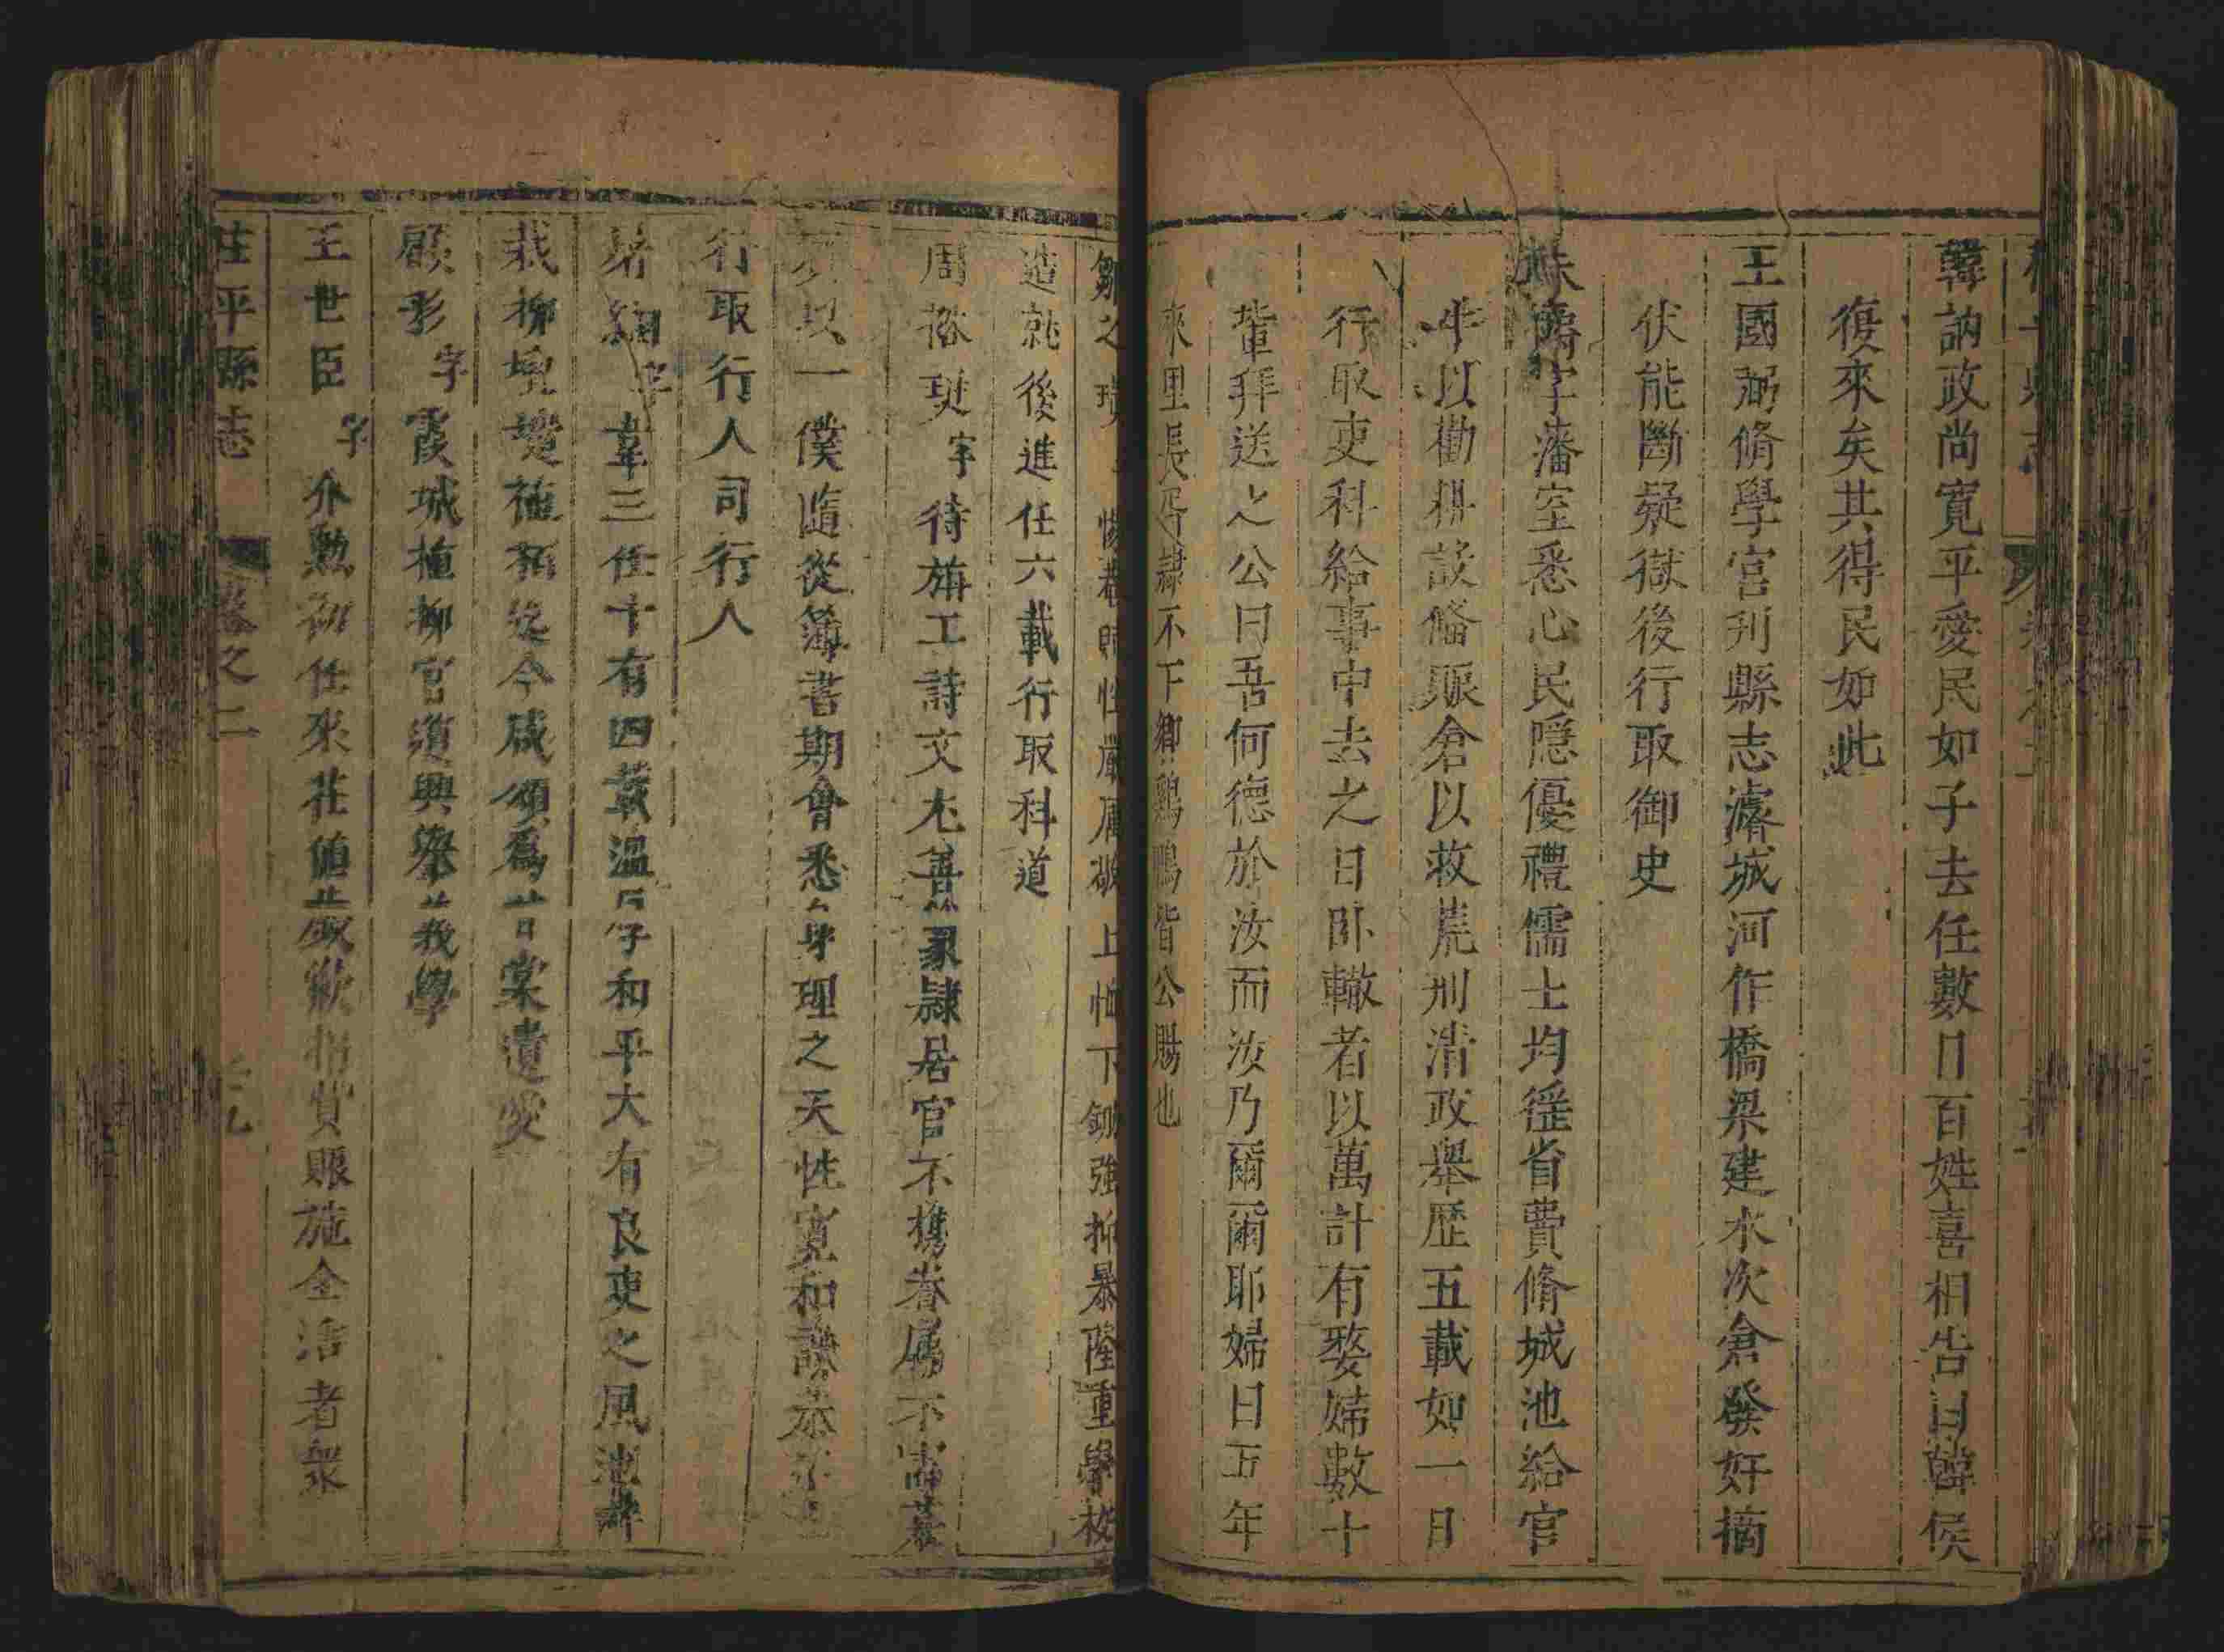 韓訥政尚寛平愛民如子去任數日百姓喜相告曰韓侯
復來矣其得民如此
王國弼脩學宮刋縣志濬城河作橋梁建水次倉發奸摘
伏能斷疑獄後行取御史
字藩室悉心民隱優禮儒士均徭省費脩城池給官
牛以勸耕設偹賑倉以救荒刑清政舉歷五載如一日
行取吏科給事中去之日卧轍者以萬計有婺婦數十
輩拜送之公曰吾何德於汝而汝乃爾爾耶婦曰五年
來里長皂隸不下鄉鷄鴨皆公賜也
鄒之 性嚴 上 下鋤強抑暴隆重學校
造就後進任六載行取科道
周裕 字待旃工詩文尤善 隸居官不携眷屬不
一僕隨從簿書期會悉 身理之天性寛和謙恭
行取行人司行人
字韋三任十有四載溫 和平大有良吏之風
栽柳 今咸頌爲甘棠遺愛
顧彩字霞城植柳官道興舉義學
王世臣字介勲初任來茌值歲歉捐貲賑施全活者衆
茌平縣志 卷之二